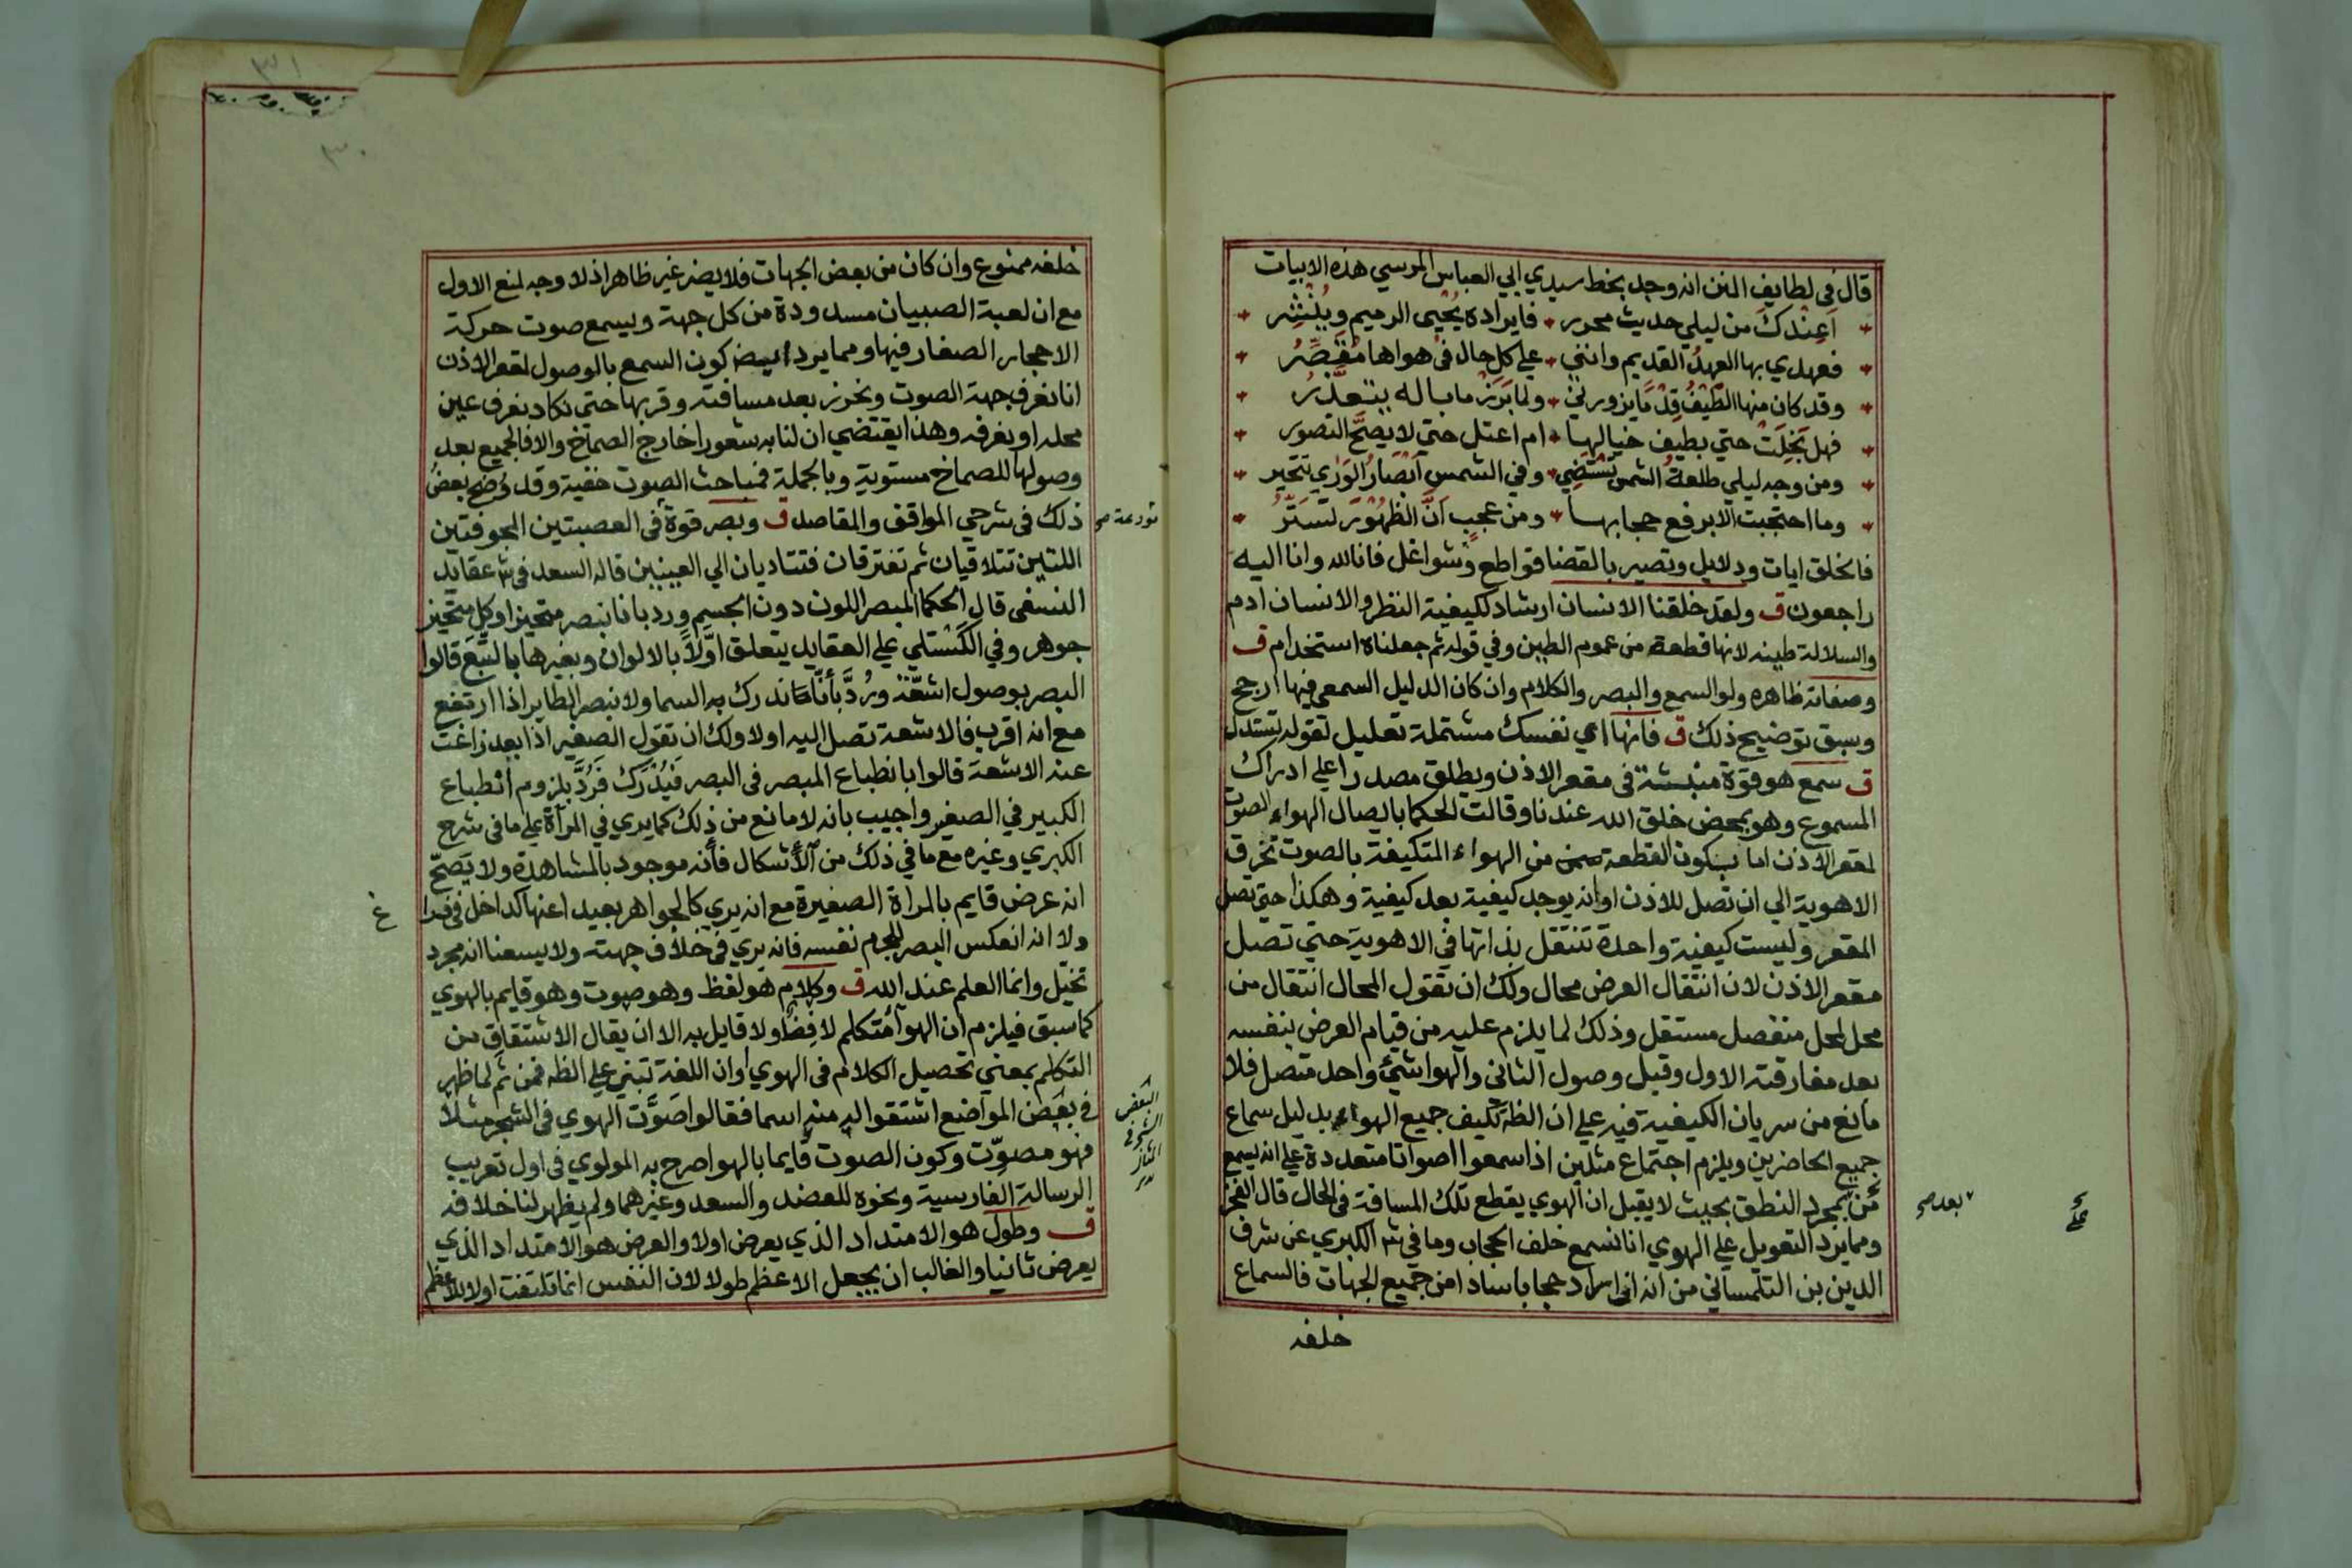 قال في لطايف المنن انه وجد بخط سيدي ابي العباس المرسي هذه الابيات
اعندك من ليلي حديث محرر * فايراده يحيى الرميم وينشر
فعهدي بها العهد القديم وانني * علي كل حال في هواها مقصر
وقد كان منها الطيف قدما يزورني * ولما يزر ما باله يتعذر
فهل بخلت حتي بطيف خيالها * ام اعتل حتي لا يصح التصور
ومن وجه ليلي طلعة الشمس تستضي * وفي الشمس ابصار الوري تتحير
وما احتجبت الا برفع حجابها * ومن عجب ان الظهور تستر
فالخلق ايات ودلايل وتصير بالقضا قواطع وشواغل فانا لله وانا اليه
راجعون ق ولقد خلقنا الانسان ارشاد لكيفية النظر والانسان ادم
والسلالة طينه لانها قطعة من عموم الطين وفي قوله ثم جعلناه استخدام ق
وصفاته ظاهره ولو السمع والبصر والكلام وان كان الدليل السمعي فيها ارجح
وسبق توضيح ذلك ق فانها اي نفسك مشتملة تعليل لقوله تستدل
ق سمع هو قوة منبثة في مقعر الاذن ويطلق مصدرا علي ادراك
المسموع وهو بمحض خلق الله عندنا وقالت الحكما بايصال الهواء الصوت
لمقعر الاذن اما بكون القطعة من الهواء المتكيفة بالصوت تخرق
الاهوية الي ان تصل للاذن او انه يوجد كيفية بعد كيفية وهكذا حتي تصل
المقعر وليست كيفية واحدة تنتقل بذاتها في الاهوية حتي تصل
مقعر الاذن لان انتقال العرض محال ولك ان تقول المحال انتقال من
محل لمحل منفصل مستقل وذلك لما يلزم عليه من قيام العرض بنفسه
بعد مفارقته الاول وقبل وصول الثاني والهوا شيء واحد متصل فلا
مانع من سريان الكيفية فيه علي ان الظه تكيف جميع الهواء بدليل سماع
جميع الحاضرين ويلزم اجتماع مثلين اذا سمعوا اصواتا متعددة علي انه يسمع
من بمجرد النطق بحيث لا يقبل ان الهوي يقطع تلك المسافة في الحال قال الفخر
بعد صح
ومما يرد التعويل علي الهوي انا نسمع خلف الحجاب وما في شر الكبري عن شرف
الدين بن التلمساني من انه ان اراد حجابا سادا من جميع الجهات فالسماع
خلفه
٣١
٣٠
خلفه ممنوع وان كان من بعض الجهات فلا يضر غير ظاهر اذ لا وجه لمنع الاول
مع ان لعبة الصبيان مسدودة من كل جهة ويسمع صوت حركة
الاحجار الصغار فيها ومما يرد ايضا كون السمع بالوصول لمقعر الاذن
انا نعرف جهة الصوت ونحزر بعد مسافته وقربها حتي نكاد نعرف عين
محله او نعرفه وهذا يقتضي ان لنا به شعورا خارج الصماخ والا فالجميع بعد
وصولها للصماخ مستوية وبالجملة فمباحث الصوت خفية وقد وضح بعض
ذلك في شرحي المواقف والمقاصد ق وبصر قوة في العصبتين المجوفتين
مودعة صح
اللتين تتلاقيان ثم تفترقان فتتاديان الي العينين قاله السعد في شر عقايد
النسفي قال الحكما المبصر اللون دون الجسم ورد بانا نبصر متحيزا وكل متحيز
جوهر وفي الكستلي علي العقايد يتعلق اولا بالالوان وبغيرها بالتبع قالوا
البصر بوصول اشعة ورد بانا ندرك به السما ولا نبصر الطاير اذا ارتفع
مع انه اقرب فالاشعة تصل اليه اولا ولك ان تقول الصغير اذا بعد زاغت
عنه الاشعة قالوا بانطباع المبصر في البصر فيدرك فرد بلزوم انطباع
الكبير في الصغير واجيب بانه لا مانع من ذلك كما يري في المرآة علي ما في شرح
الكبري وغيره مع ما في ذلك من الاشكال فانه موجود بالمشاهدة ولا يصح
انه عرض قايم بالمراة الصغيرة مع انه يري كالجواهر بعيدا عنها كداخل في
ولا انه انعكس البصر للجرم نفسه فانه يري في خلاف جهته ولا يسعنا انه مجرد
تخيل وانما العلم عند الله ق وكلام هو لفظ وهو صوت وهو قايم بالهوي
كما سبق فيلزم ان الهوا متكلم لافظ ولا قايل به الا ان يقال الاشتقاق من
التكلم بمعني تحصيل الكلام في الهوي او ان اللغة تبني علي الظه فمن ثم لما ظهر
في بعض المواضع اشتقوا له منه اسما فقالوا صوت الهوي في الشجر مثلا
فهو مصوت وكون الصوت قايما بالهوا صرح به المولوي في اول تعريب
الرسالة الفارسية ونحوه للعضد والسعد وغيرهما ولم يظهر لنا خلافه
ق وطول هو الامتداد الذي يعرض اولا والعرض هو الامتداد الذي
يعرض ثانيا والغالب ان يجعل الاعظم طولا لان النفس انما تلتفت اولا للاعظم